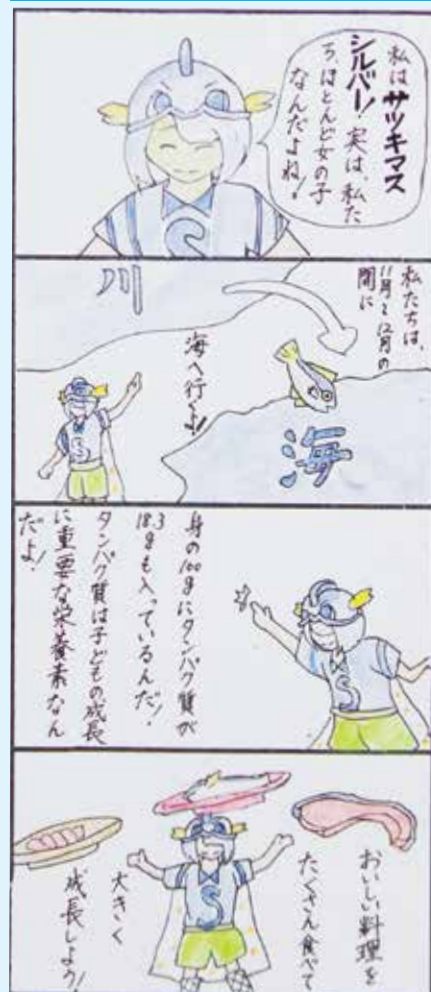 私はサツキマス
シルバー!実は、私た
ち、ほとんど女の子
なんだよね!
S
私たちは、
11月と12月の
間に
川
海へ行くよ!
海
S
身の100gにタンパク質が
18.3gも入っているんだ!
タンパク質は子どもの成長
に重要な栄養素なん
だよ!
S
おいしい料理を
たくさん食べて
大きく
成長しよう!
S